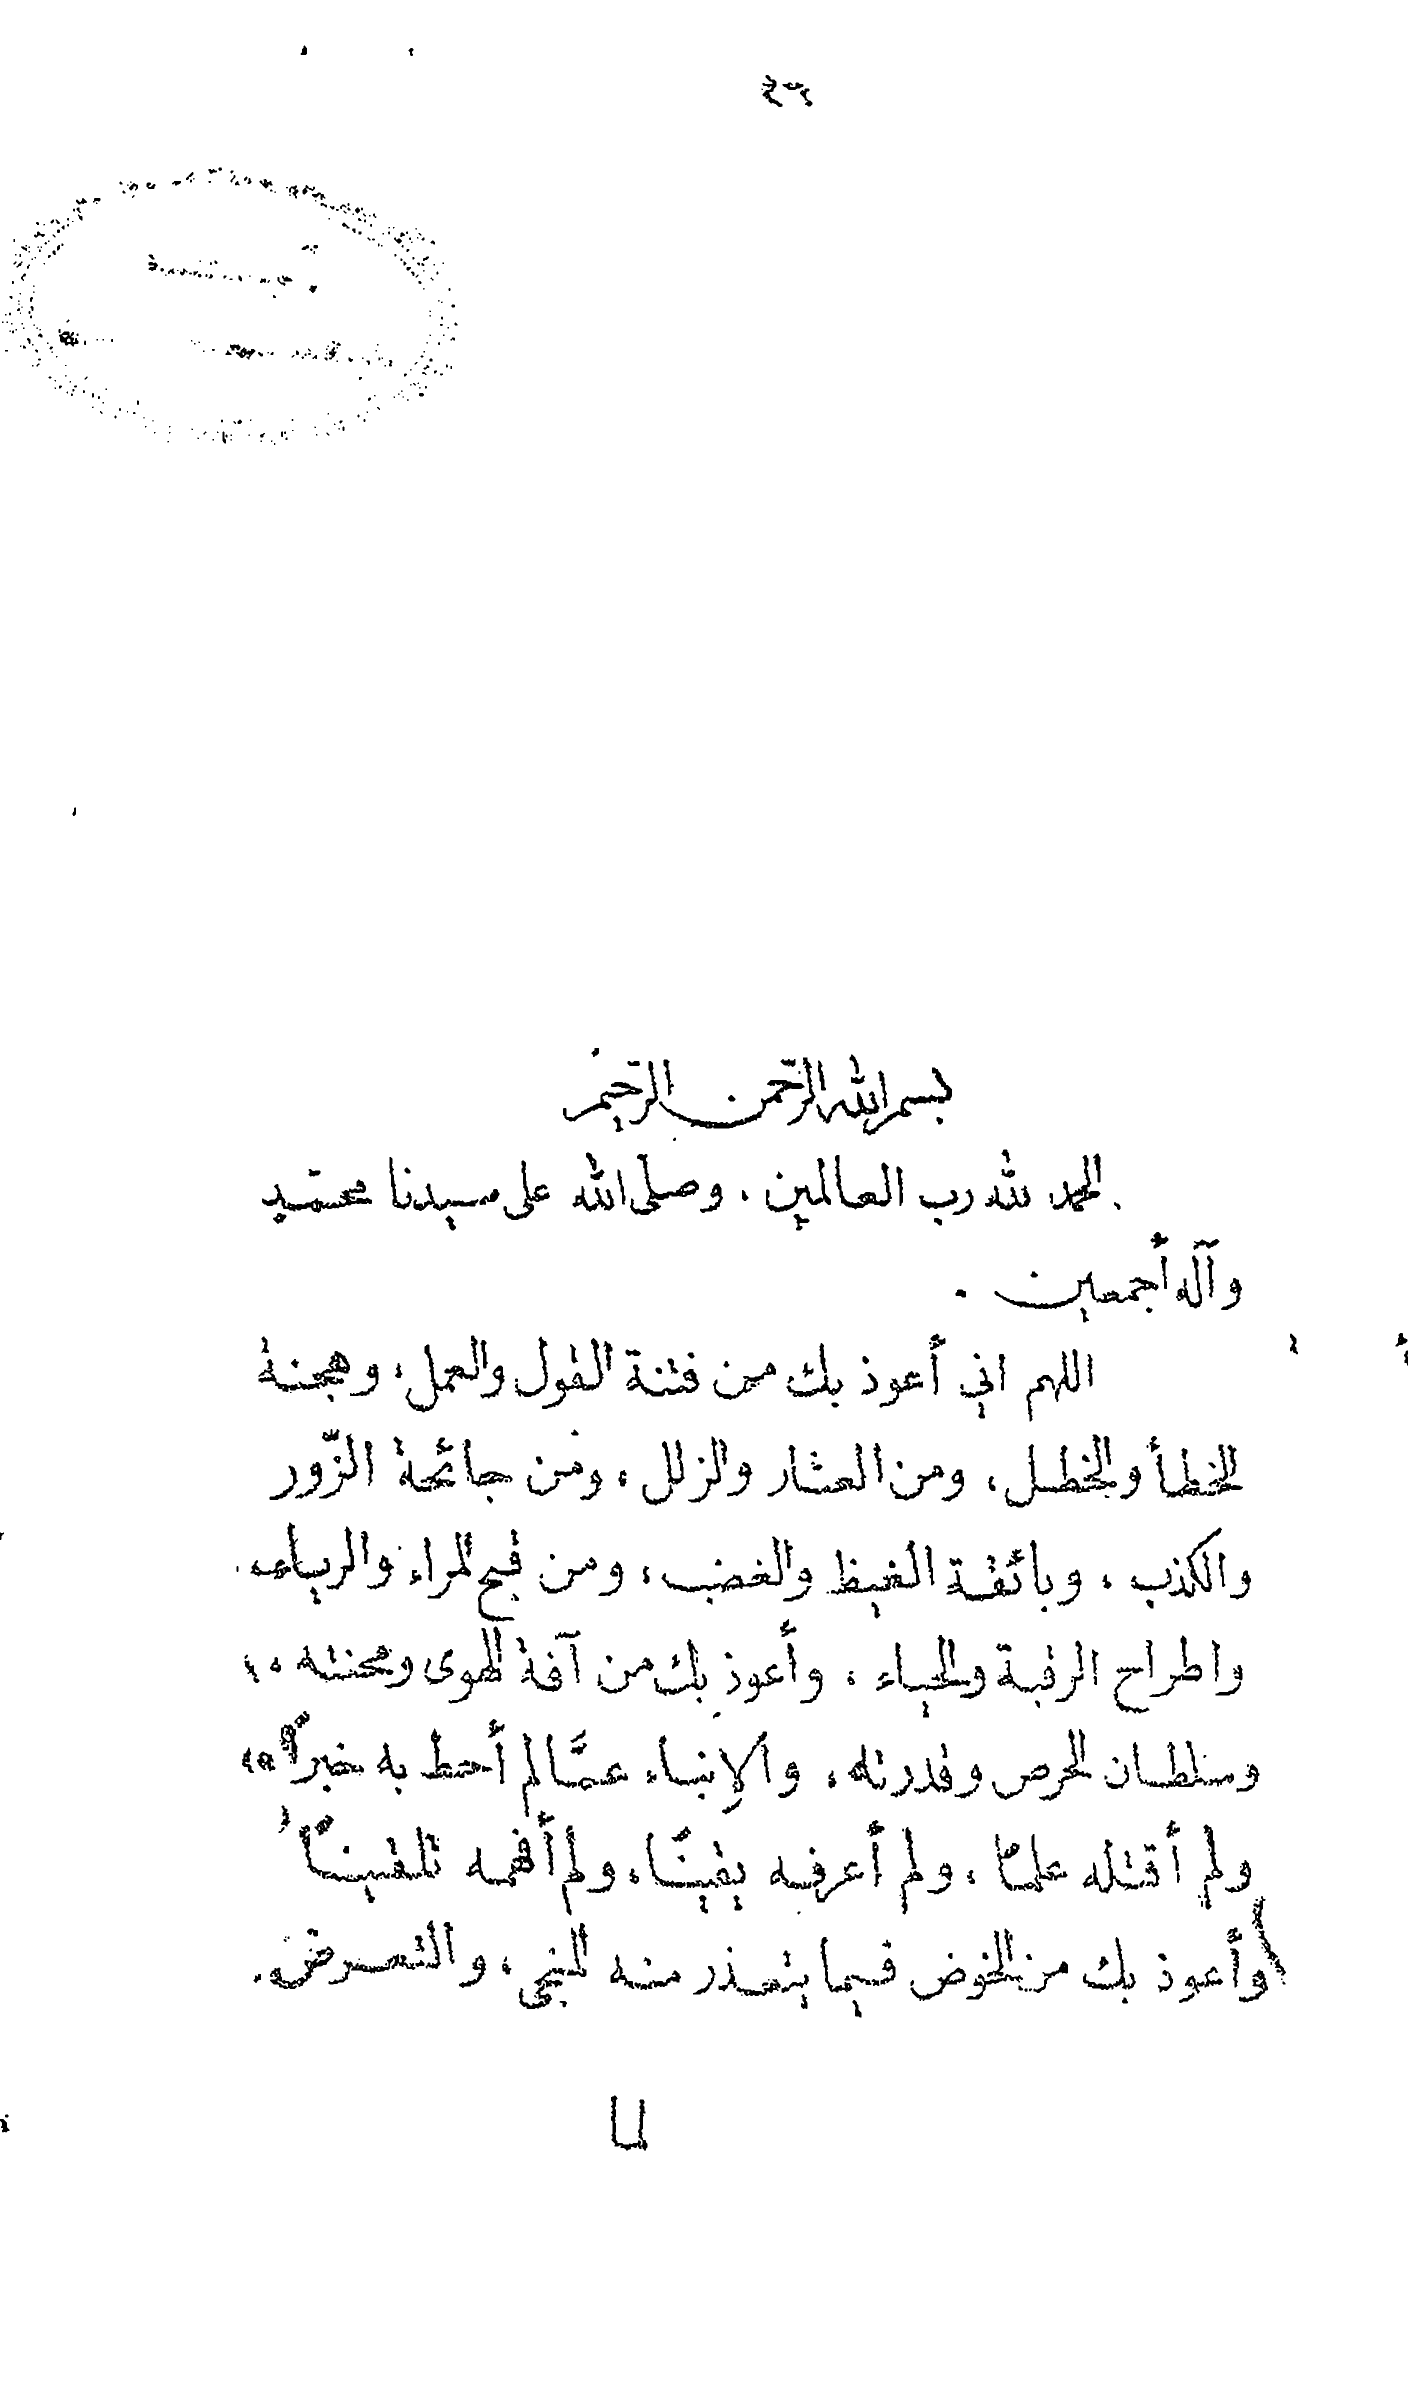 بسم الله الرّحمن الرّحيم
الحمد لله رب العالمين ، وصلّى الله على سيدنا محمّد
وآله أجمعين .
اللهم اني أعوذ بك من فتنة القول والعمل ، وهجنة
الخطأ والخطل ، ومن العثار والزلل ، ومن جائحة الزّور
والكذب ، وبائقة الغيظ والغضب ، ومن قبح المراء والرياء
واطراح الرقبة والحياء ، وأعوذ بك من آفة الهوى ومحنته ،
وسلطان الحرص وقدرته ، والإنباء عمَّا لم أحط به خبراً ،
ولم أقتله علماً ، ولم أعرفه يقينًا ، ولم أفهمه تلقينًا
وأعوذ بك من الخوض فيما يتعذر منه المنجى ، والتعرض
لما